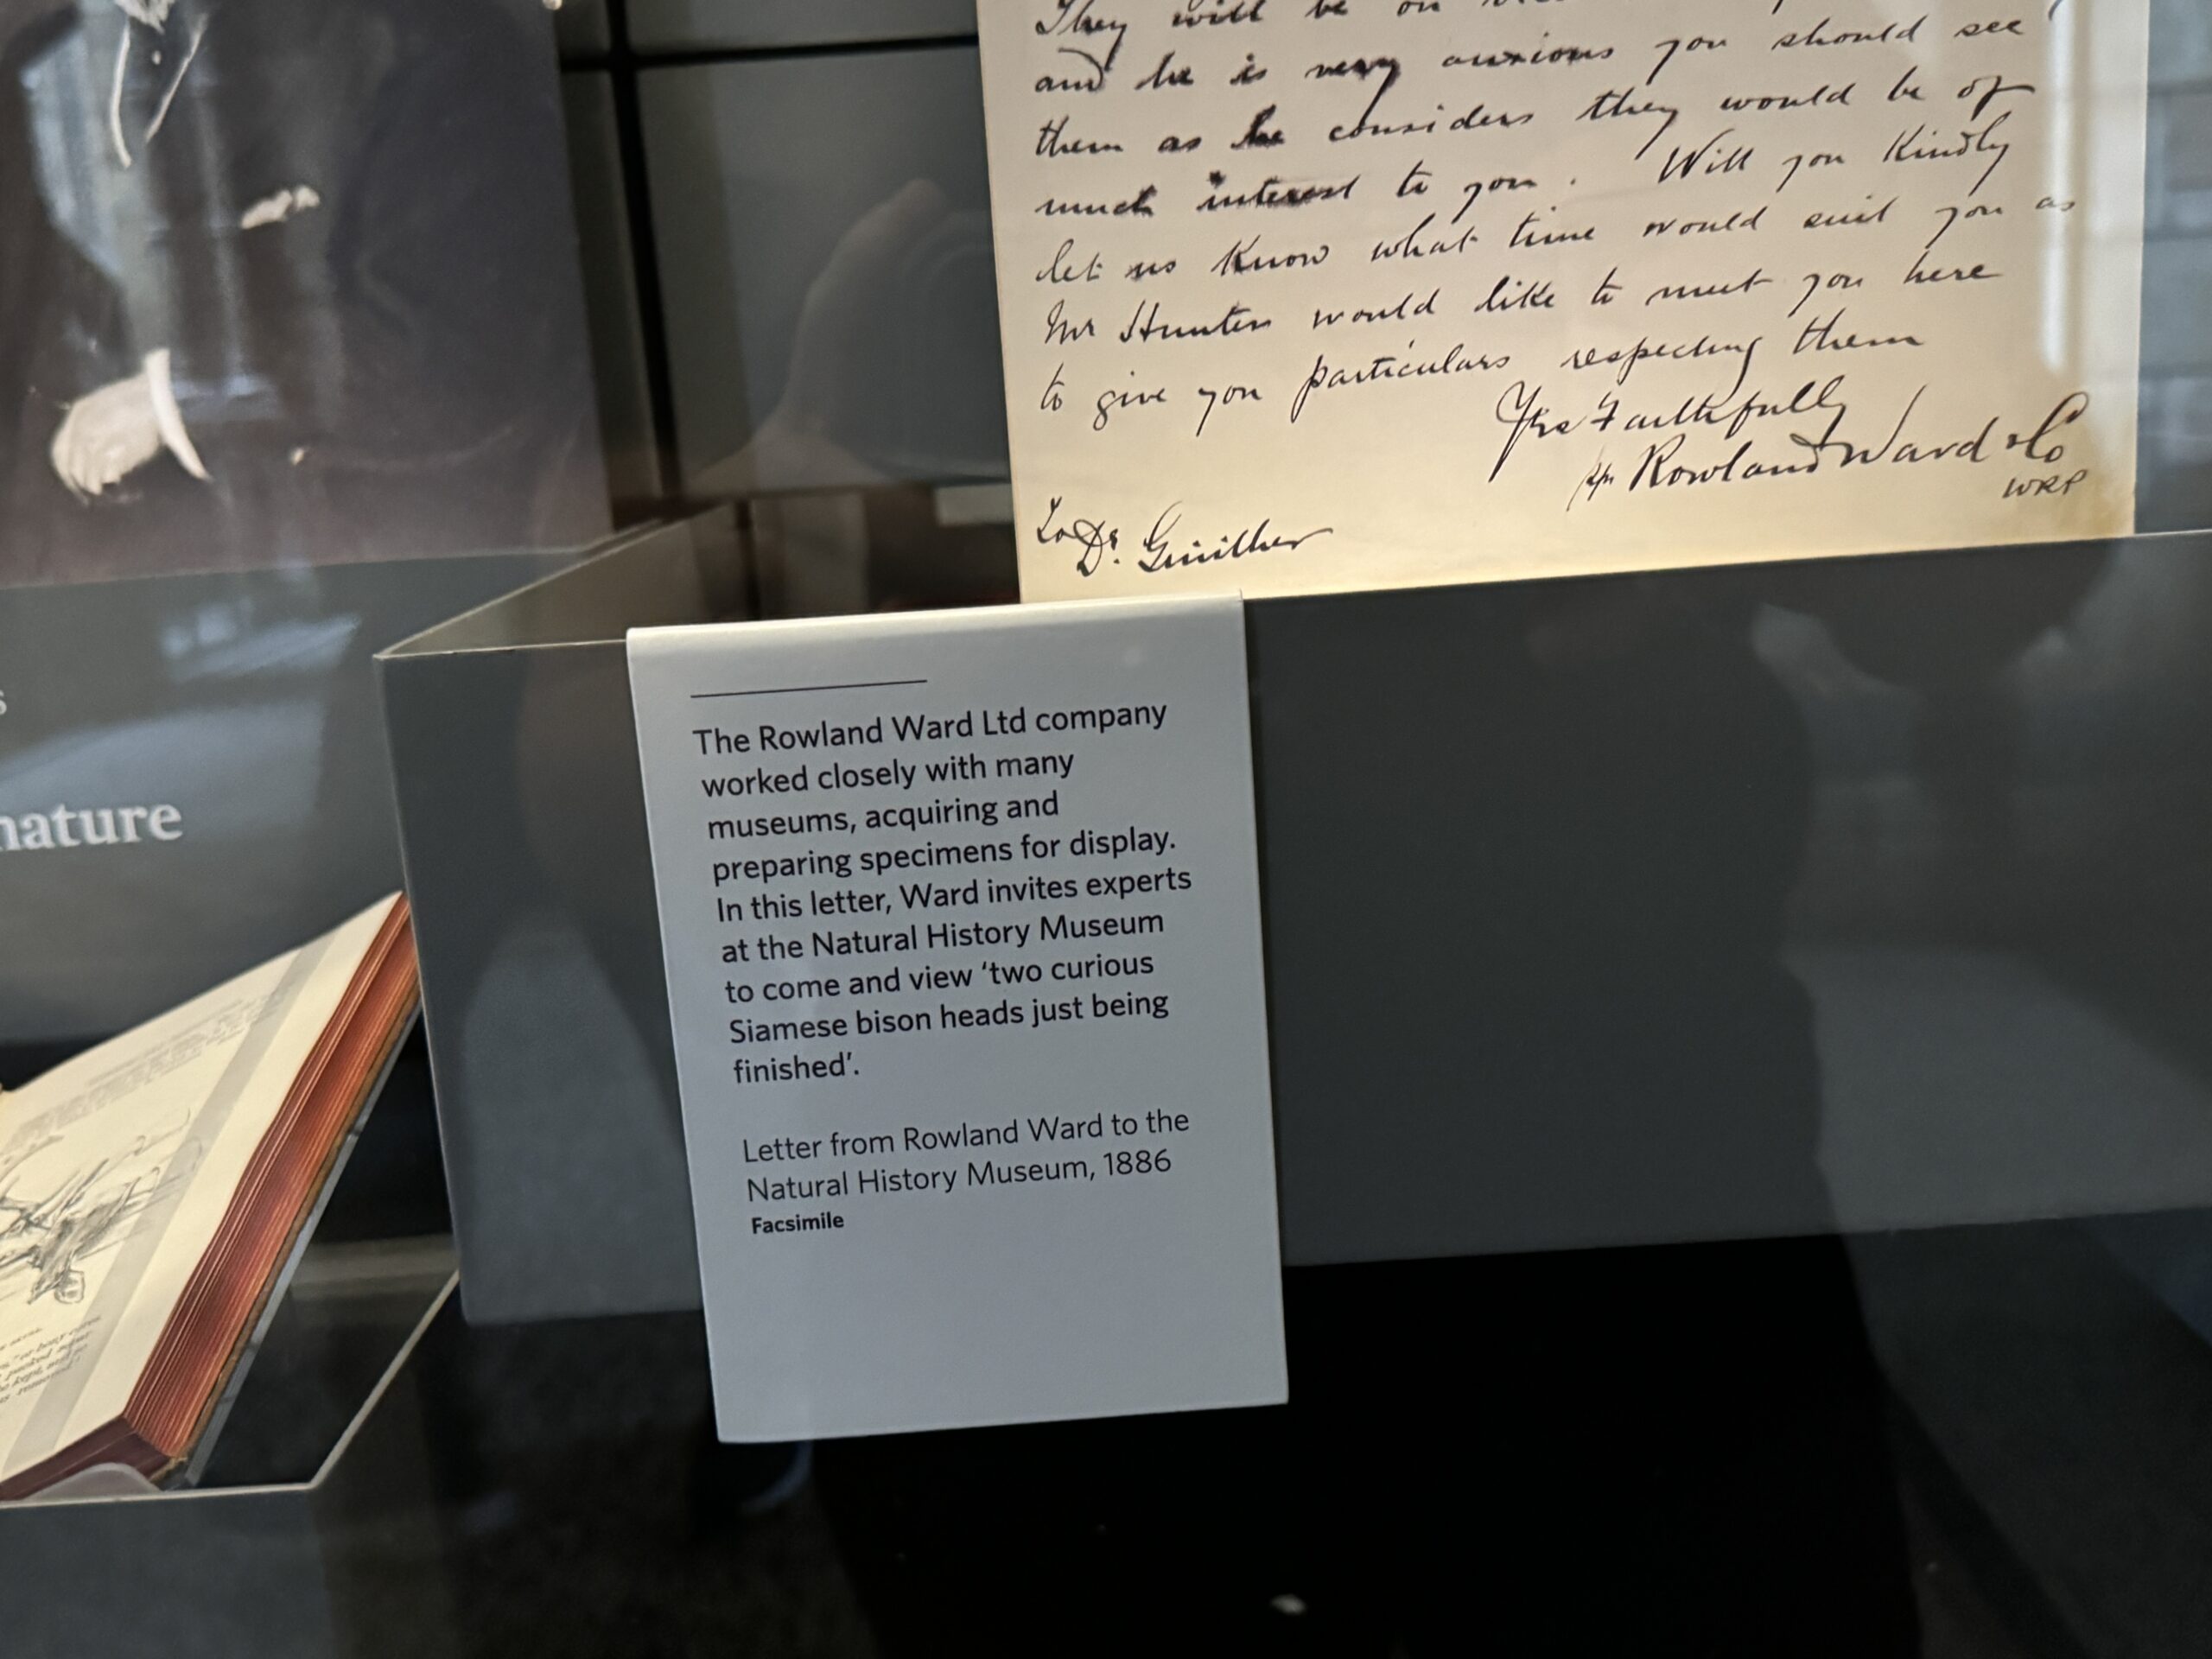 They will be on
and he is very anxious you should see
them as he considers they would be of
much interest to you. Will you Kindly
let us Know what time would suit you as
Mr Hunter would like to meet you here
to give you particulars respecting them
Yrs Faithfully
Rowland Ward & Co
WRP
To Dr. Günther
s
nature
The Rowland Ward Ltd company
worked closely with many
museums, acquiring and
preparing specimens for display.
In this letter, Ward invites experts
at the Natural History Museum
to come and view ‘two curious
Siamese bison heads just being
finished’.
Letter from Rowland Ward to the
Natural History Museum, 1886
Facsimile